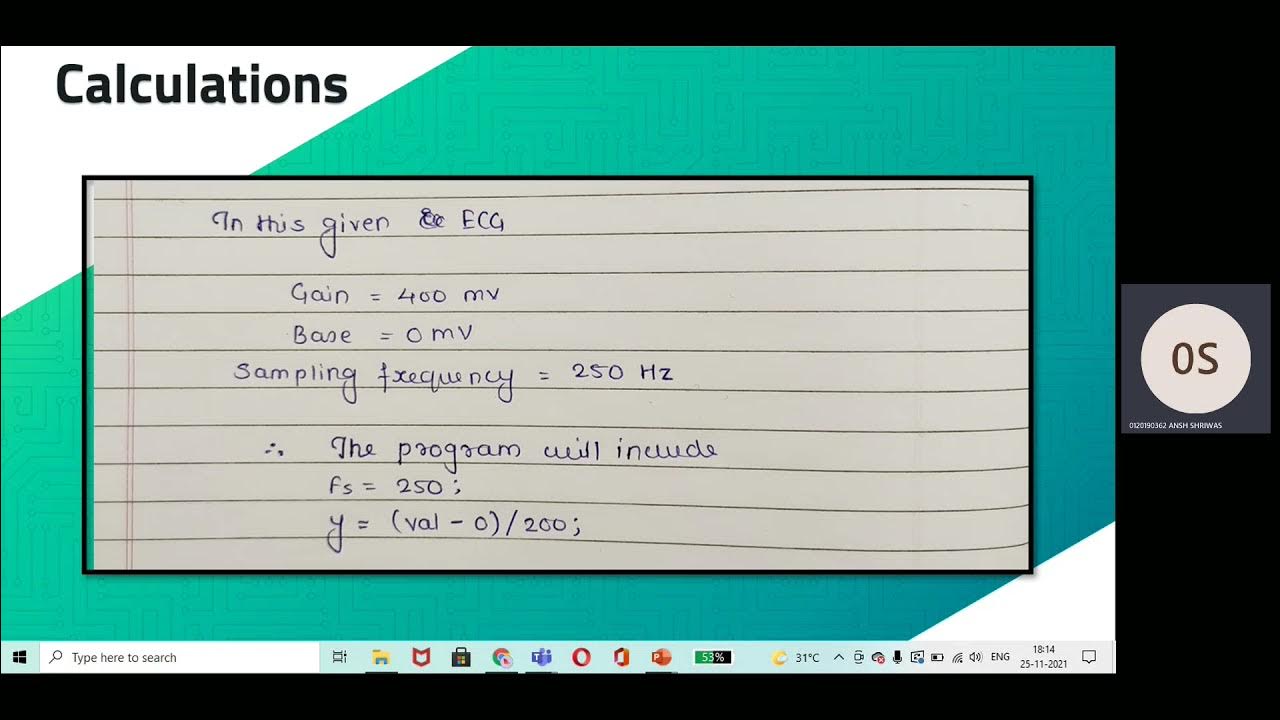 Calculations
In this given ECG
Gain = 400 mv
Base = 0 mV
Sampling frequency = 250 Hz
∴ The program will include
Fs = 250 ;
y = (val - 0) / 200 ;
OS
0120190362 ANSH SHRIWAS
Type here to search
53%
31°C
ENG
18:14
25-11-2021